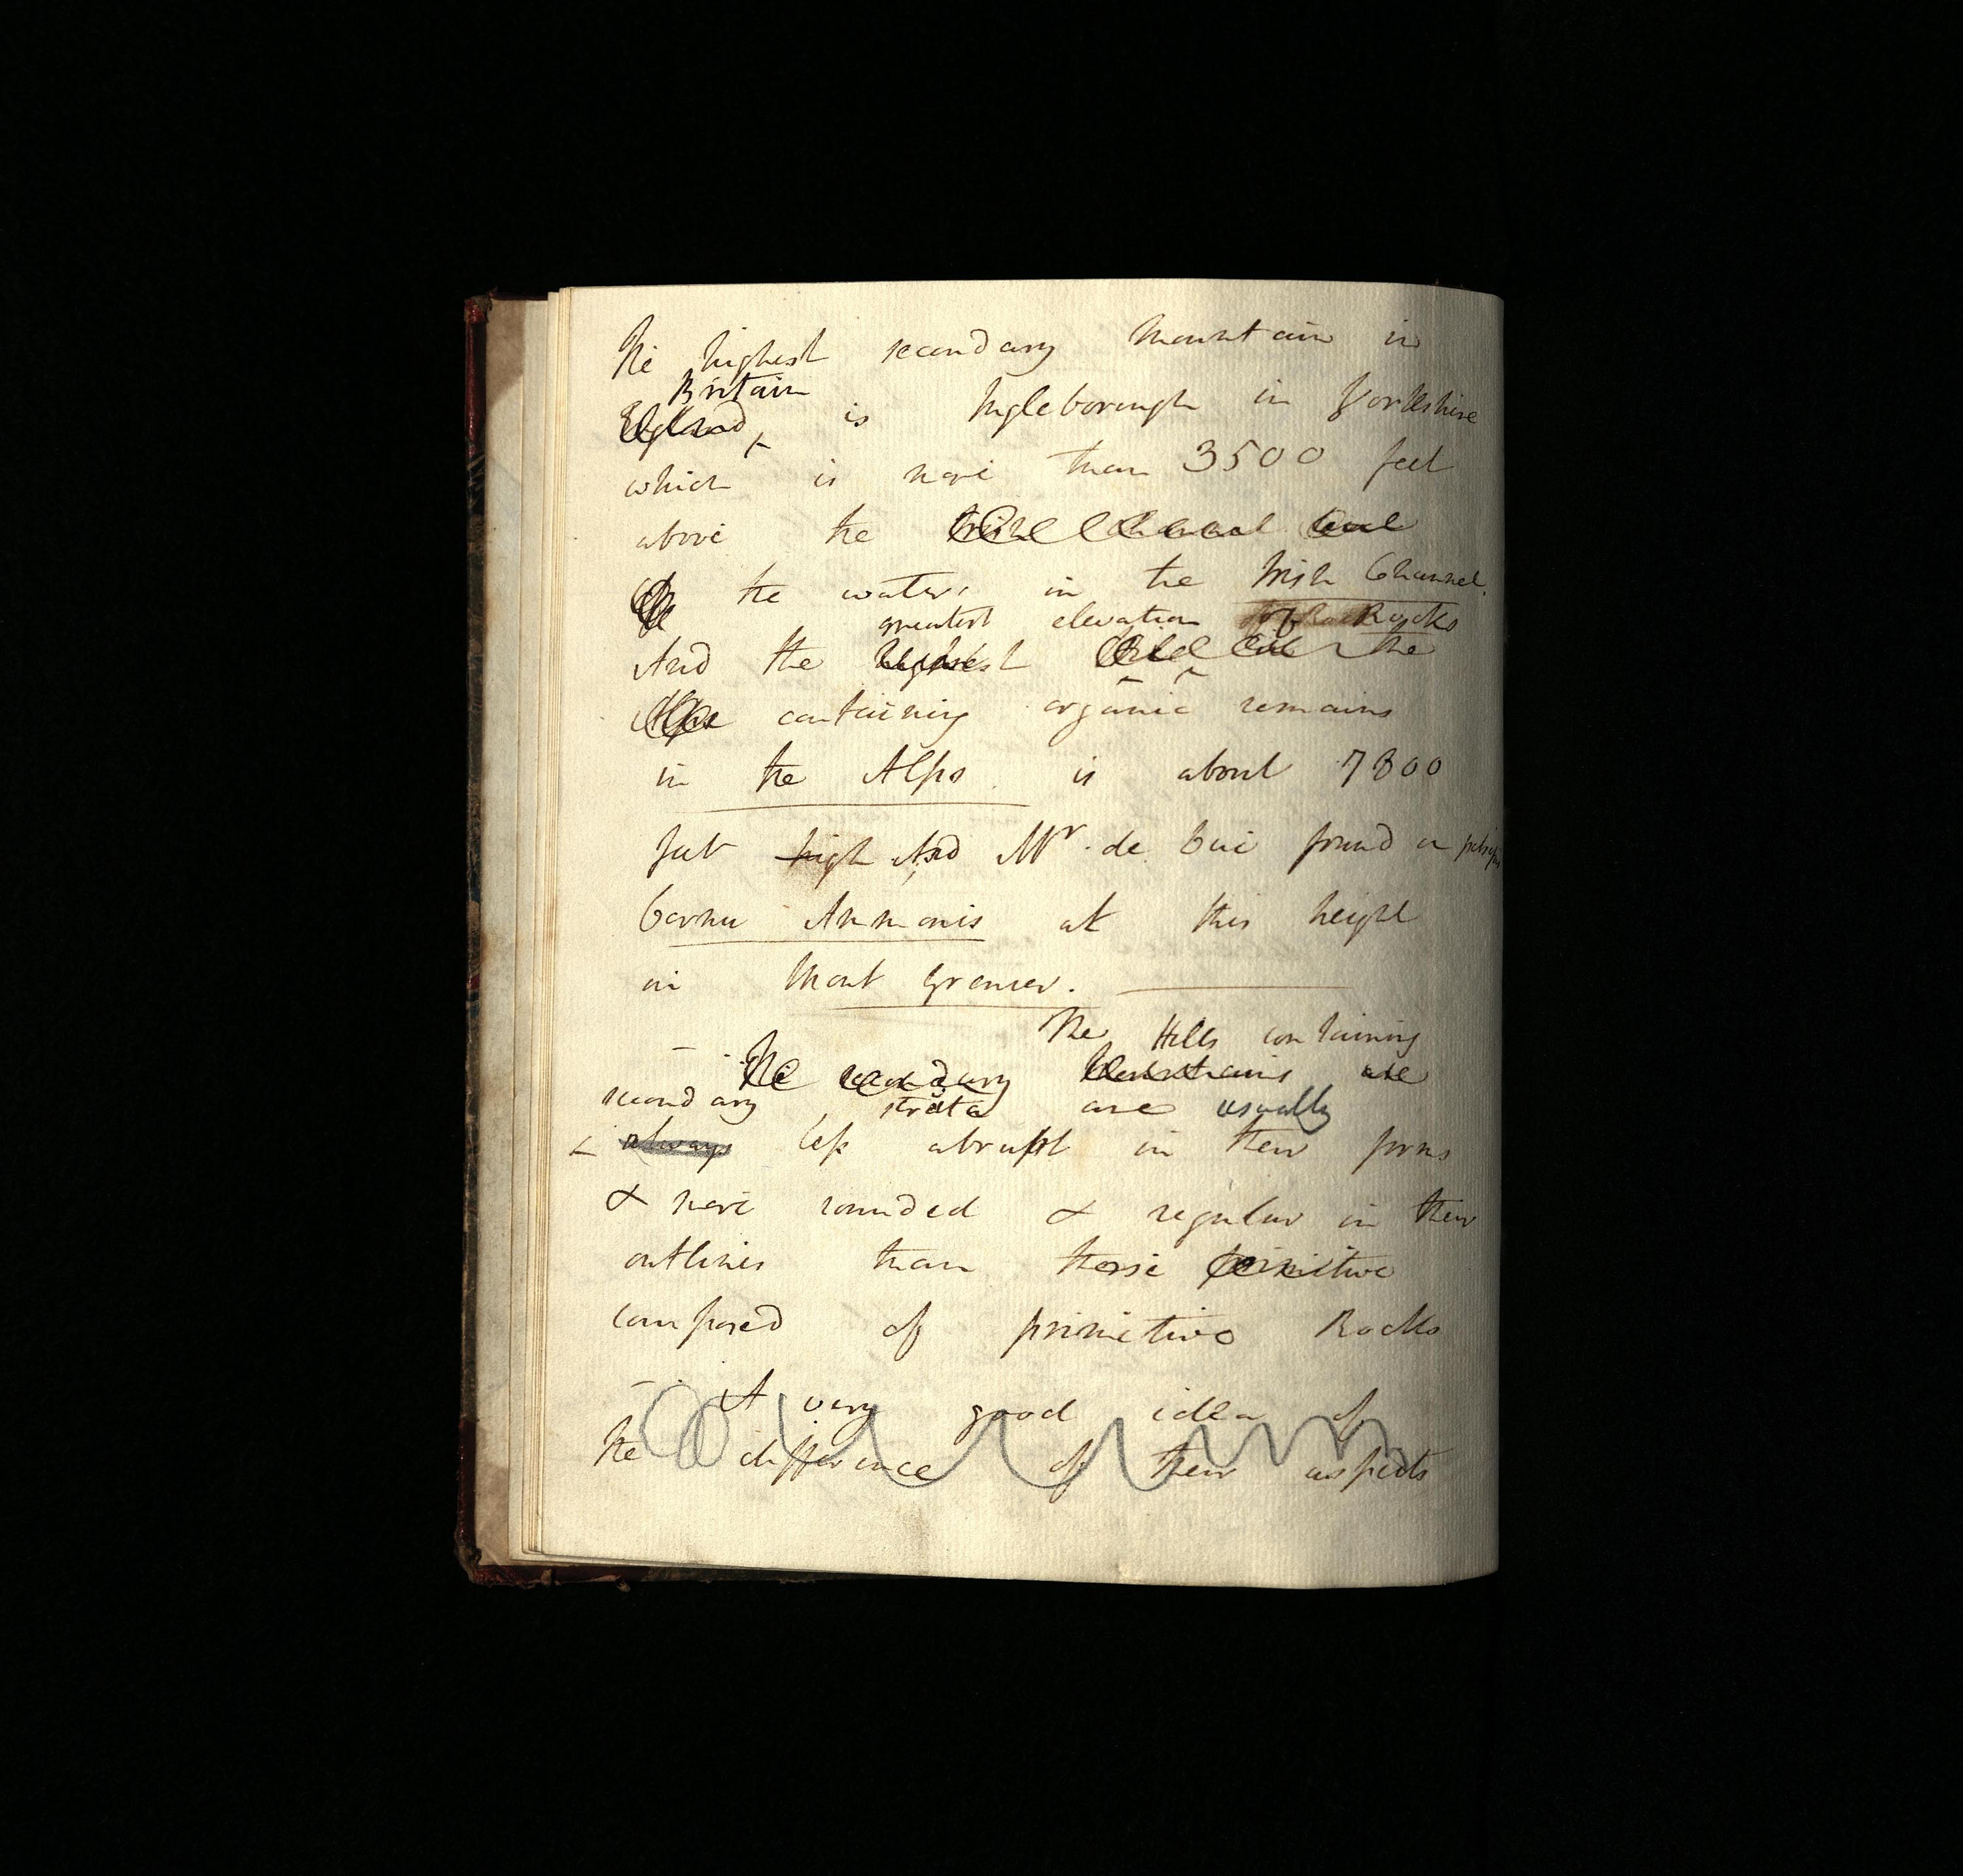 The highest secondary mountain in
Britain
England is Ingleborough in Yorkshire
which is more than 3500 feet
above the Irish Channel level
Of the waters in the Irish Channel.
greatest elevation of Rocks
And the highest the
containing organic remains
in the Alps. is about 7800
feet high And Mr. de Luc found a petrified
Cornu Ammonis at this height
in Mont Grenier.
The Hills containing
— The secondary Mountains are
secondary strata are usually
always less abrupt in their forms
& more rounded & regular in their
outlines than those primitive
composed of primitive Rocks
— A very good idea of
the difference of their aspects